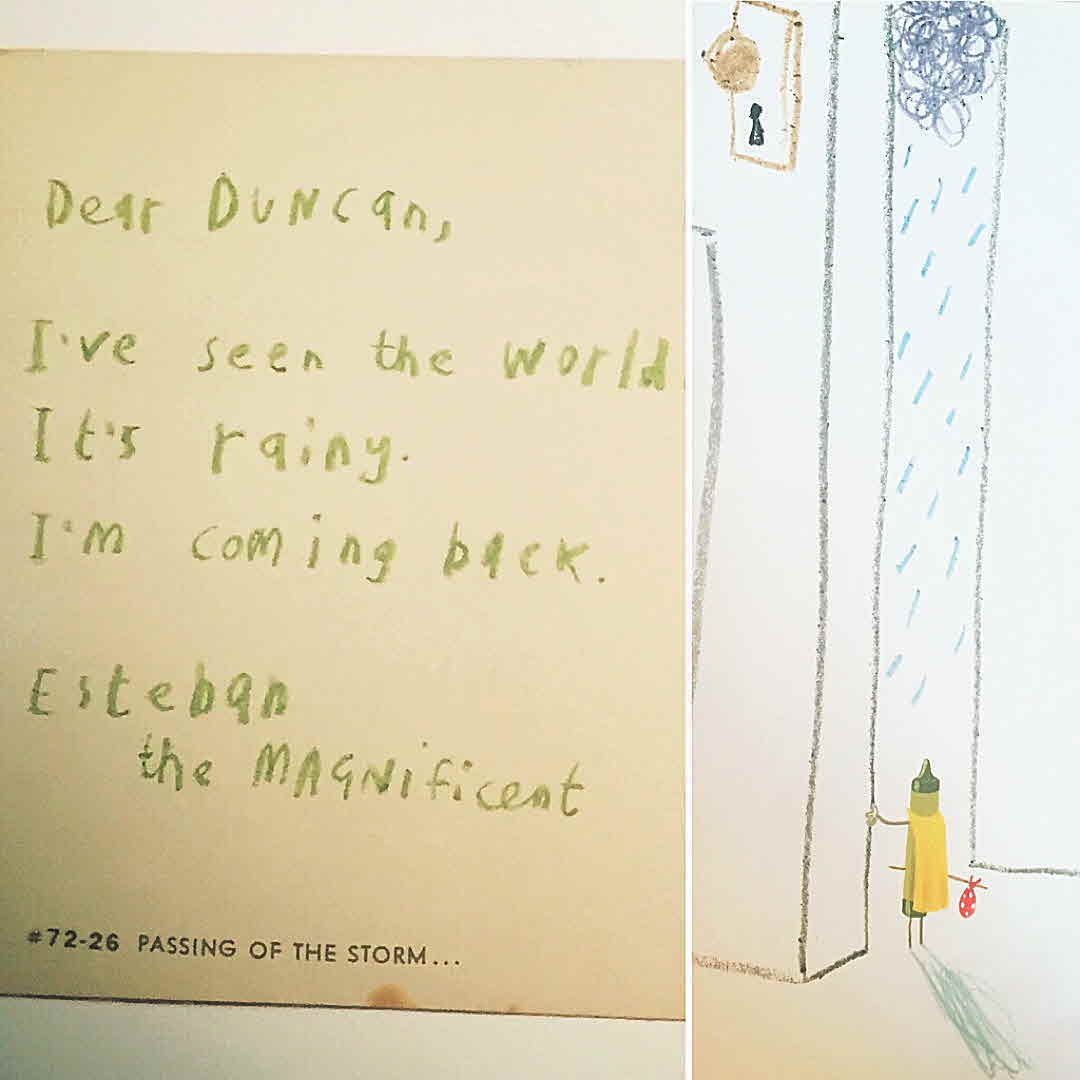 Dear DUNCan,
I've seen the world
It's rainy.
I'm coming back.
Esteban
the MAGNificent
#72-26 PASSING OF THE STORM...